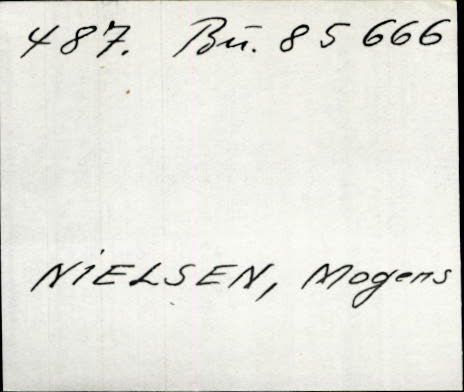 487. Bu. 85 666
NIELSEN, Mogens